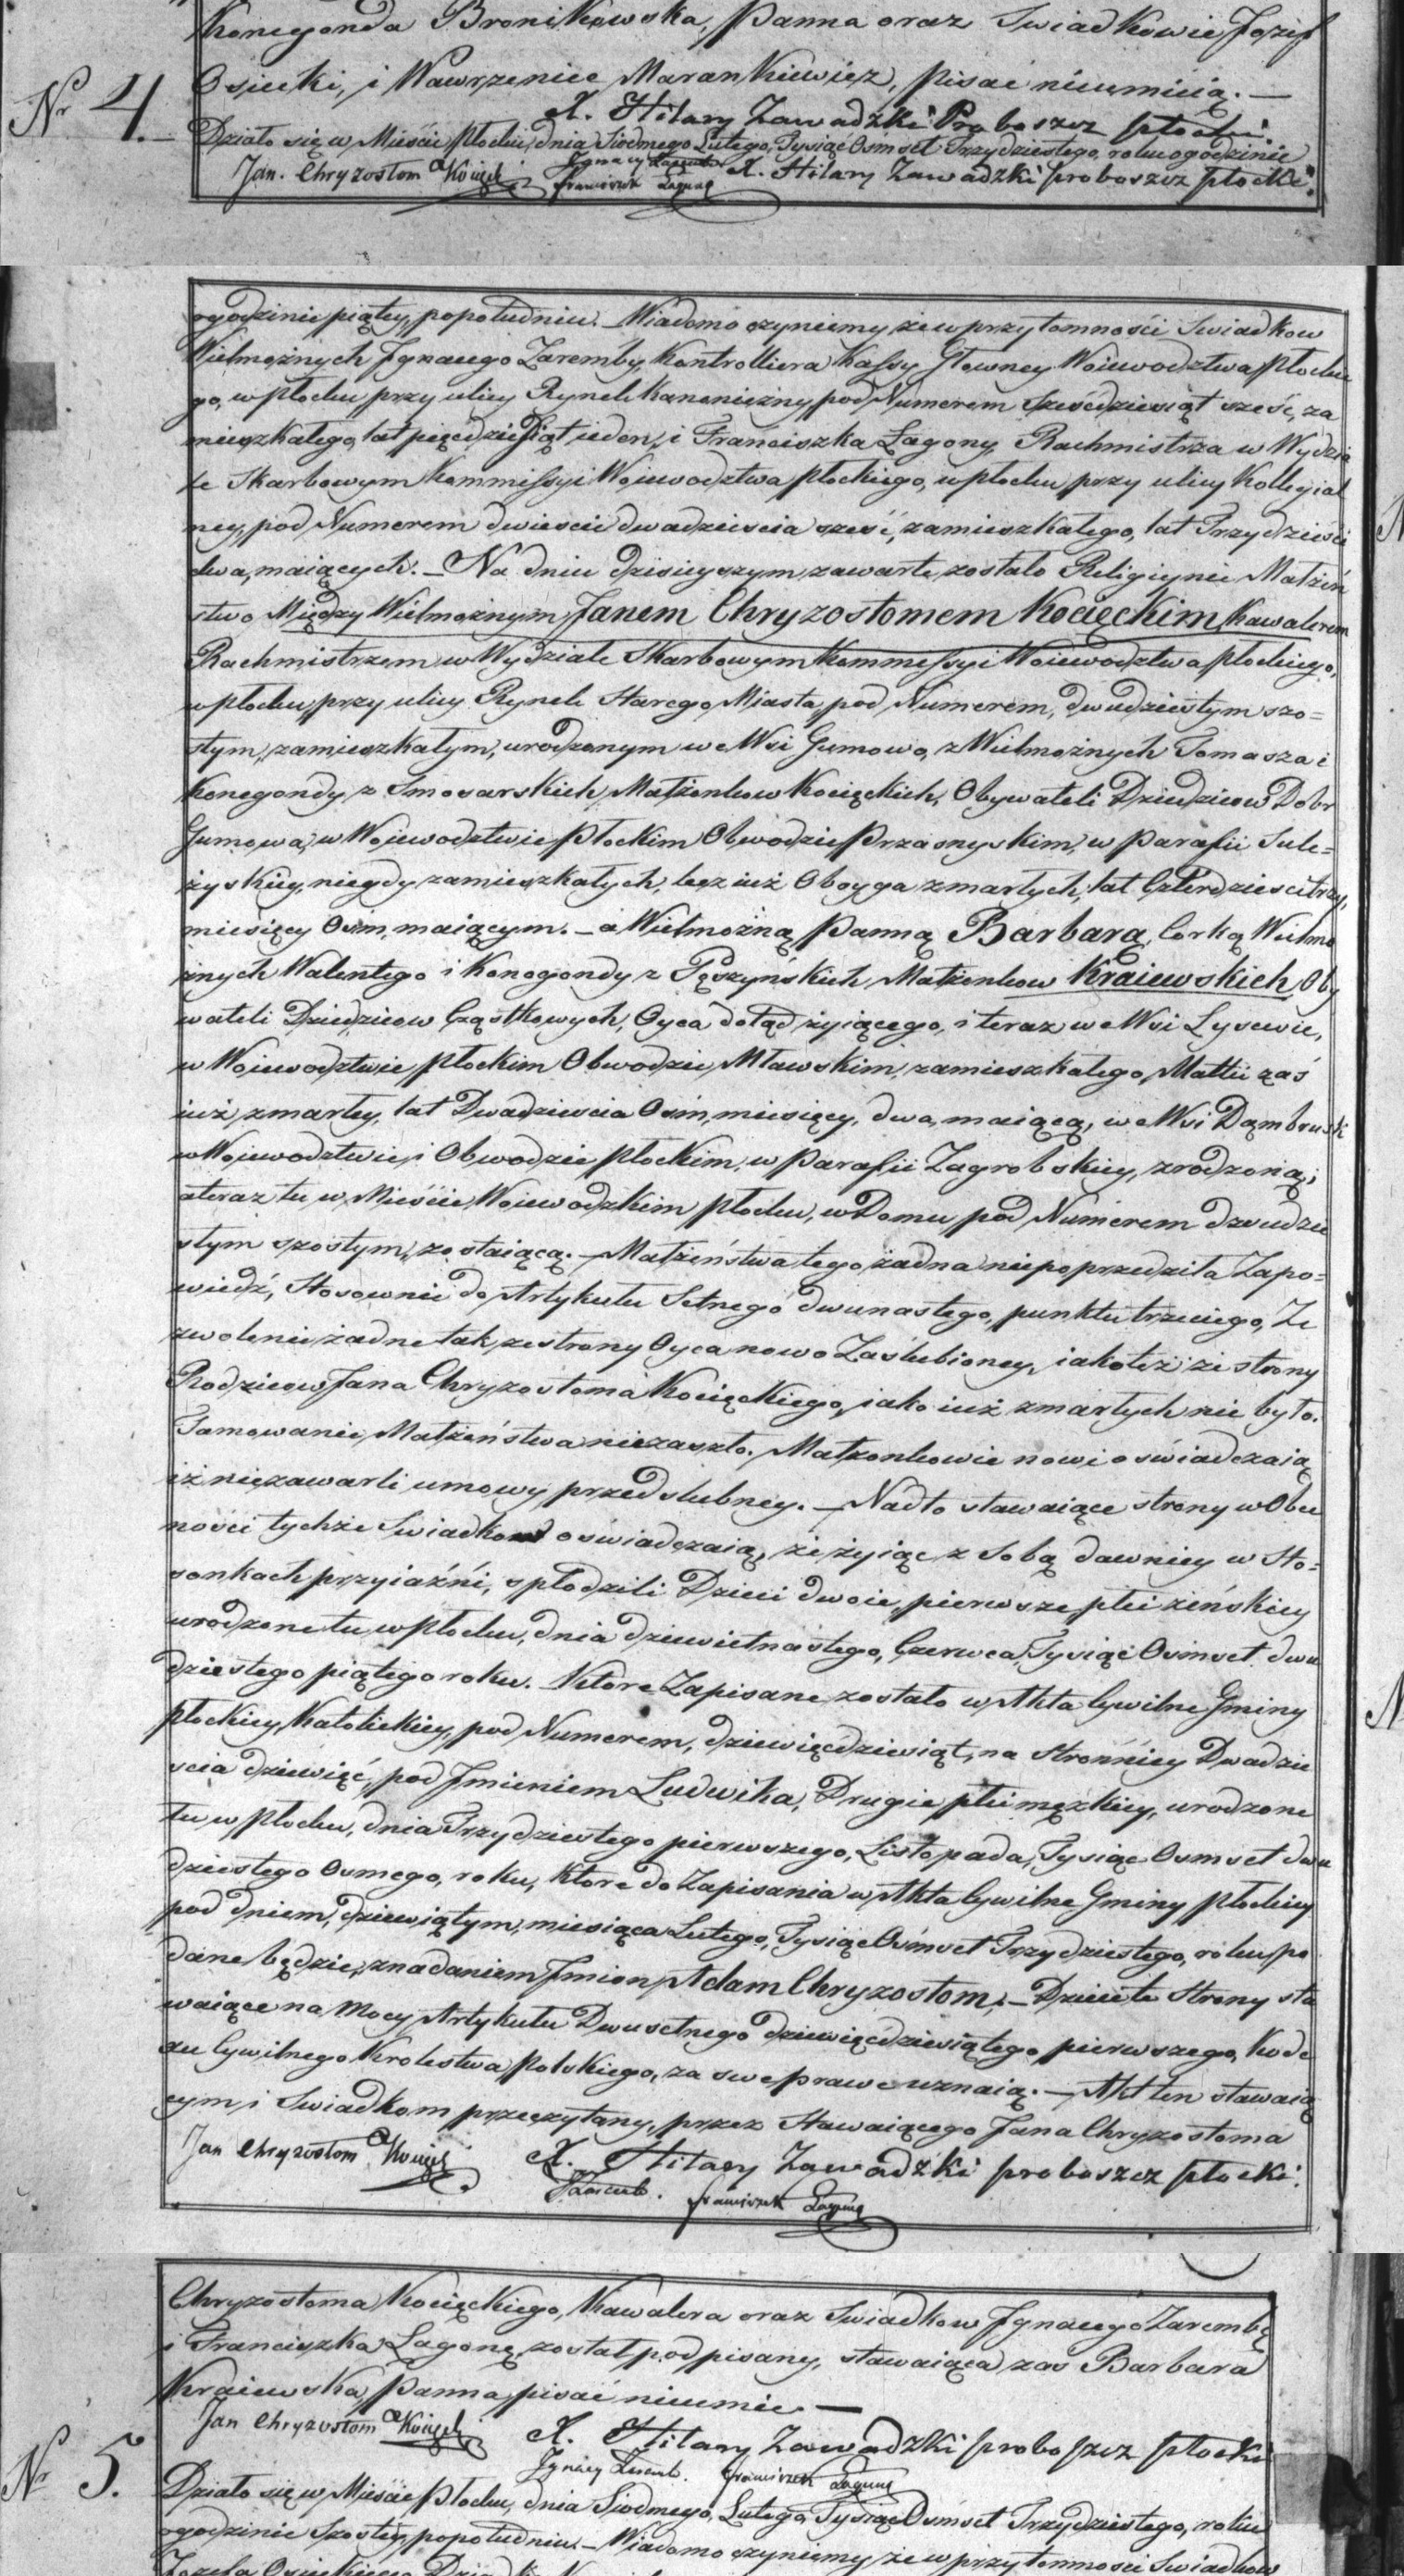 Konegonda Bronikowska, Panna oraz Swiadkowie Jozef
Osiecki, i Wawrzeniec Marankiewicz, pisać nieumieią. —
X. Hilary Zawadzki Proboszcz płocki
Nr 4.
Działo się w Mieście Płocku, dnia Siodmego Lutego, Tysiąć Ośmset Trzydziestego, roku ogodzinie
Jan Chryzostom Kocięcki Ignacy Zaremba X. Hilary Zawadzki proboszcz płocki.
Franciszek Łaguna
ogodzinie piątey, popołudniu. – Wiadomo czyniemy że w przytomności Swiadkow
Wielmożnych Jgnacego Zaremby, Kontrolliera Kassy Głowney Woiewodztwa Płockie
go, w Płocku przy ulicy Rynek Kanoniczny pod Numerem Szescdziesiąt sześć, za
mieszkałego, lat pięcdziesiąt ieden, i Franciszka Łagony, Rachmistrza w Wydzia
le Skarbowym Kommissyi Woiewodztwa Płockiego, w Płocku przy ulicy Kollegial
ney, pod Numerem dwiescie dwadziescia sześć, zamieszkałego, lat Trzydzieści
dwa, maiących. – Na dniu dzisieyszym zawarte zostało Religiynie Małżeń
stwo Między Wielmożnym Janem Chryzostomem Kocięckim, Kawalerem
Rachmistrzem w Wydziale Skarbowym Kommissyi Woiewodztwa Płockiego,
w Płocku, przy ulicy Rynek Starego Miasta, pod Numerem, dwudziestym szo=
stym, zamieszkałym, urodzonym we Wsi Gumowo, z Wielmożnych Tomasza i
Konegondy z Smosarskich, Małżonkow Kocięckich, Obywateli Dziedzicow Dobr
Gumowa, w Woiewodztwie Płockim Obwodzie Przasnyskim, w Parafii Sule=
żyskiey, niegdy zamieszkałych, lecz iuż Oboyga zmarłych, lat Czterdziesci trzy,
miesięcy Osm, maiącym. – a Wielmożną Panną Barbarą, Corką Wielmo
żnych Walentego i Konogondy z Pęszyńskich, Małżonkow Kraiewskich Oby
wateli Dziedzicow Cząstkowych, Oyca dotąd żyiącego, i teraz we Wsi Lysewie,
w Woiewodztwie Płockim Obwodzie Mławskim, zamieszkałego, Matki zaś
iuż zmarłey, lat Dwadziescia Osm, miesięcy, dwa, maiącą, we Wsi Dąmbrusk
w Woiewodztwie, i Obwodzie Płockim, w Parafii Zagrobskiey, zrodzoną;
a teraz tu w Mieście Woiewodzkim Płocku, w Domu pod Numerem dwudzie
stym szostym, zostaiącą. – Małżeństwa tego żadna niepoprzedziła Zapo=
wiedź, Stosownie do Artykułu Setnego dwunastego, punktu trzeciego, Ze
zwolenie żadne tak ze strony Oyca nowo Zaslubioney, iakoteż ze strony
Rodzicow Jana Chryzostoma Kocięckiego, iako iuż zmarłych nie było.
Tamowanie Małżeństwa niezaszło. Małżonkowie nowi oświadczaią
iż niezawarli umowy przedslubney. – Nadto stawaiące strony w Obec
ności tychże Swiadkow oswiadczaią, że żyiąc z Sobą dawniey w Sto=
sonkach przyiaźni, spłodzili Dzieci dwoie, pierwsze płci żeńskiey
urodzone tu w Płocku, dnia dziewietnastego, Czerwca, Tysiąć Ośmset dwu
dziestego piątego roku. Ktore Zapisane zostało w Akta Cywilne Gminy
Płockiey, Katolickiey, pod Numerem, dziewięćdziesiąt, na Stronnicy Dwadzie
scia dziewięć, pod Jmieniem Ludwika, Drugie płci męzkiey, urodzone
tu w Płocku, dnia Trzydziestego pierwszego, Listopada, Tysiąc Osmset dwu
dziestego Osmego, roku, ktore do Zapisania w Akta Cywilne Gminy Płockiey
pod dniem, dziewiątym, miesiąca Lutego, Tysiąc Ośmset Trzydziestego, roku, po
dane będzie, z nadaniem Jmion, Adam Chryzostom, – Dzieci te Strony sta
waiące na Mocy Artykułu Dwusetnego dziewięćdziesiątego pierwszego, Kode
xu Cywilnego Krolestwa Polskiego, za swe prawe uznaią. – Akt ten stawaią
cym i Swiadkom przeczytany, przez Stawaiącego Jana Chryzostoma
Jan Chryzostom Kocięcki X. Hilary Zawadzki proboszcz płocki.
Zaremba. Franciszek Łaguna
Chryzostoma Kocięckiego, Kawalera oraz Swiadkow Jgnacego Zarembę
i Franciszka Łagonę, został podpisany, stawaiąca zas Barbara
Kraiewska, Panna, pisać nieumie. —
Jan Chryzostom Kocięcki X. Hilary Zawadzki proboszcz płocki
Ignacy Zaremba. Franciszek Łaguna
Nr 5.
Działo się w Mieście Płocku, dnia Siodmego, Lutego, Tysiąc Osmset Trzydziestego, roku
ogodzinie Szostey, popołudniu. – Wiadomo czyniemy że w przytomności Swiadkow
Jozefa Osieckiego